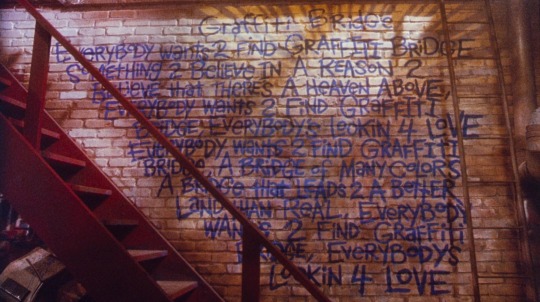 Graffiti Bridge
EVERYBODY wants 2 FIND GRAFFITI BRIDGE
SOMETHING 2 BELIEVE IN A REASON 2
BELIEVE that THERE'S A HEAVEN ABOVE
EVERYBODY WANTS 2 FIND GRAFFITI
BRIDGE, EVERYBODY'S LOOKIN 4 LOVE
EVERYBODY WANTS 2 FIND GRAFFITI
BRIDGE, A BRIDGE of MANY COLORS
A BRIDGE that LEADS 2 A BETTER
LAND THAN REAL, EVERYBODY
WANTS 2 FIND GRAFFITI
BRIDGE, EVERYBODY'S
LOOKIN 4 LOVE